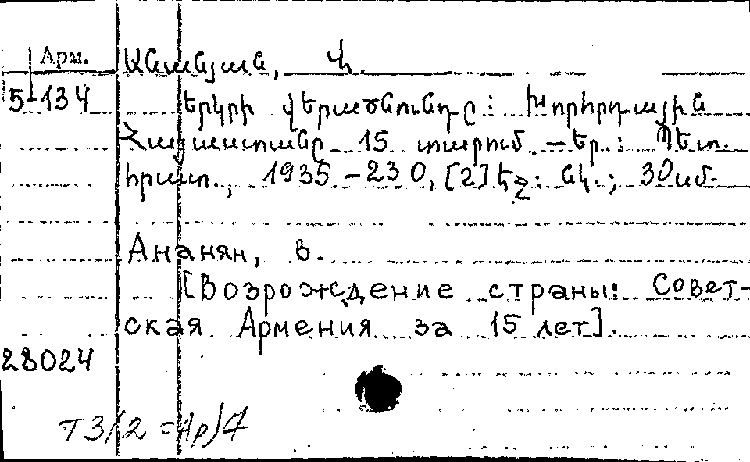 Арм. Անանյան, Վ.
5-134 Երկրի վերածնունդը: Խորհրդային
Հայաստանը 15 տարում. – Եր.: Պետ.
հրատ., 1935 – 230, [2] էջ: նկ.; 30սմ.
Ананян, В.
[Возрождение страны: Совет-
ская Армения за 15 лет].
28024